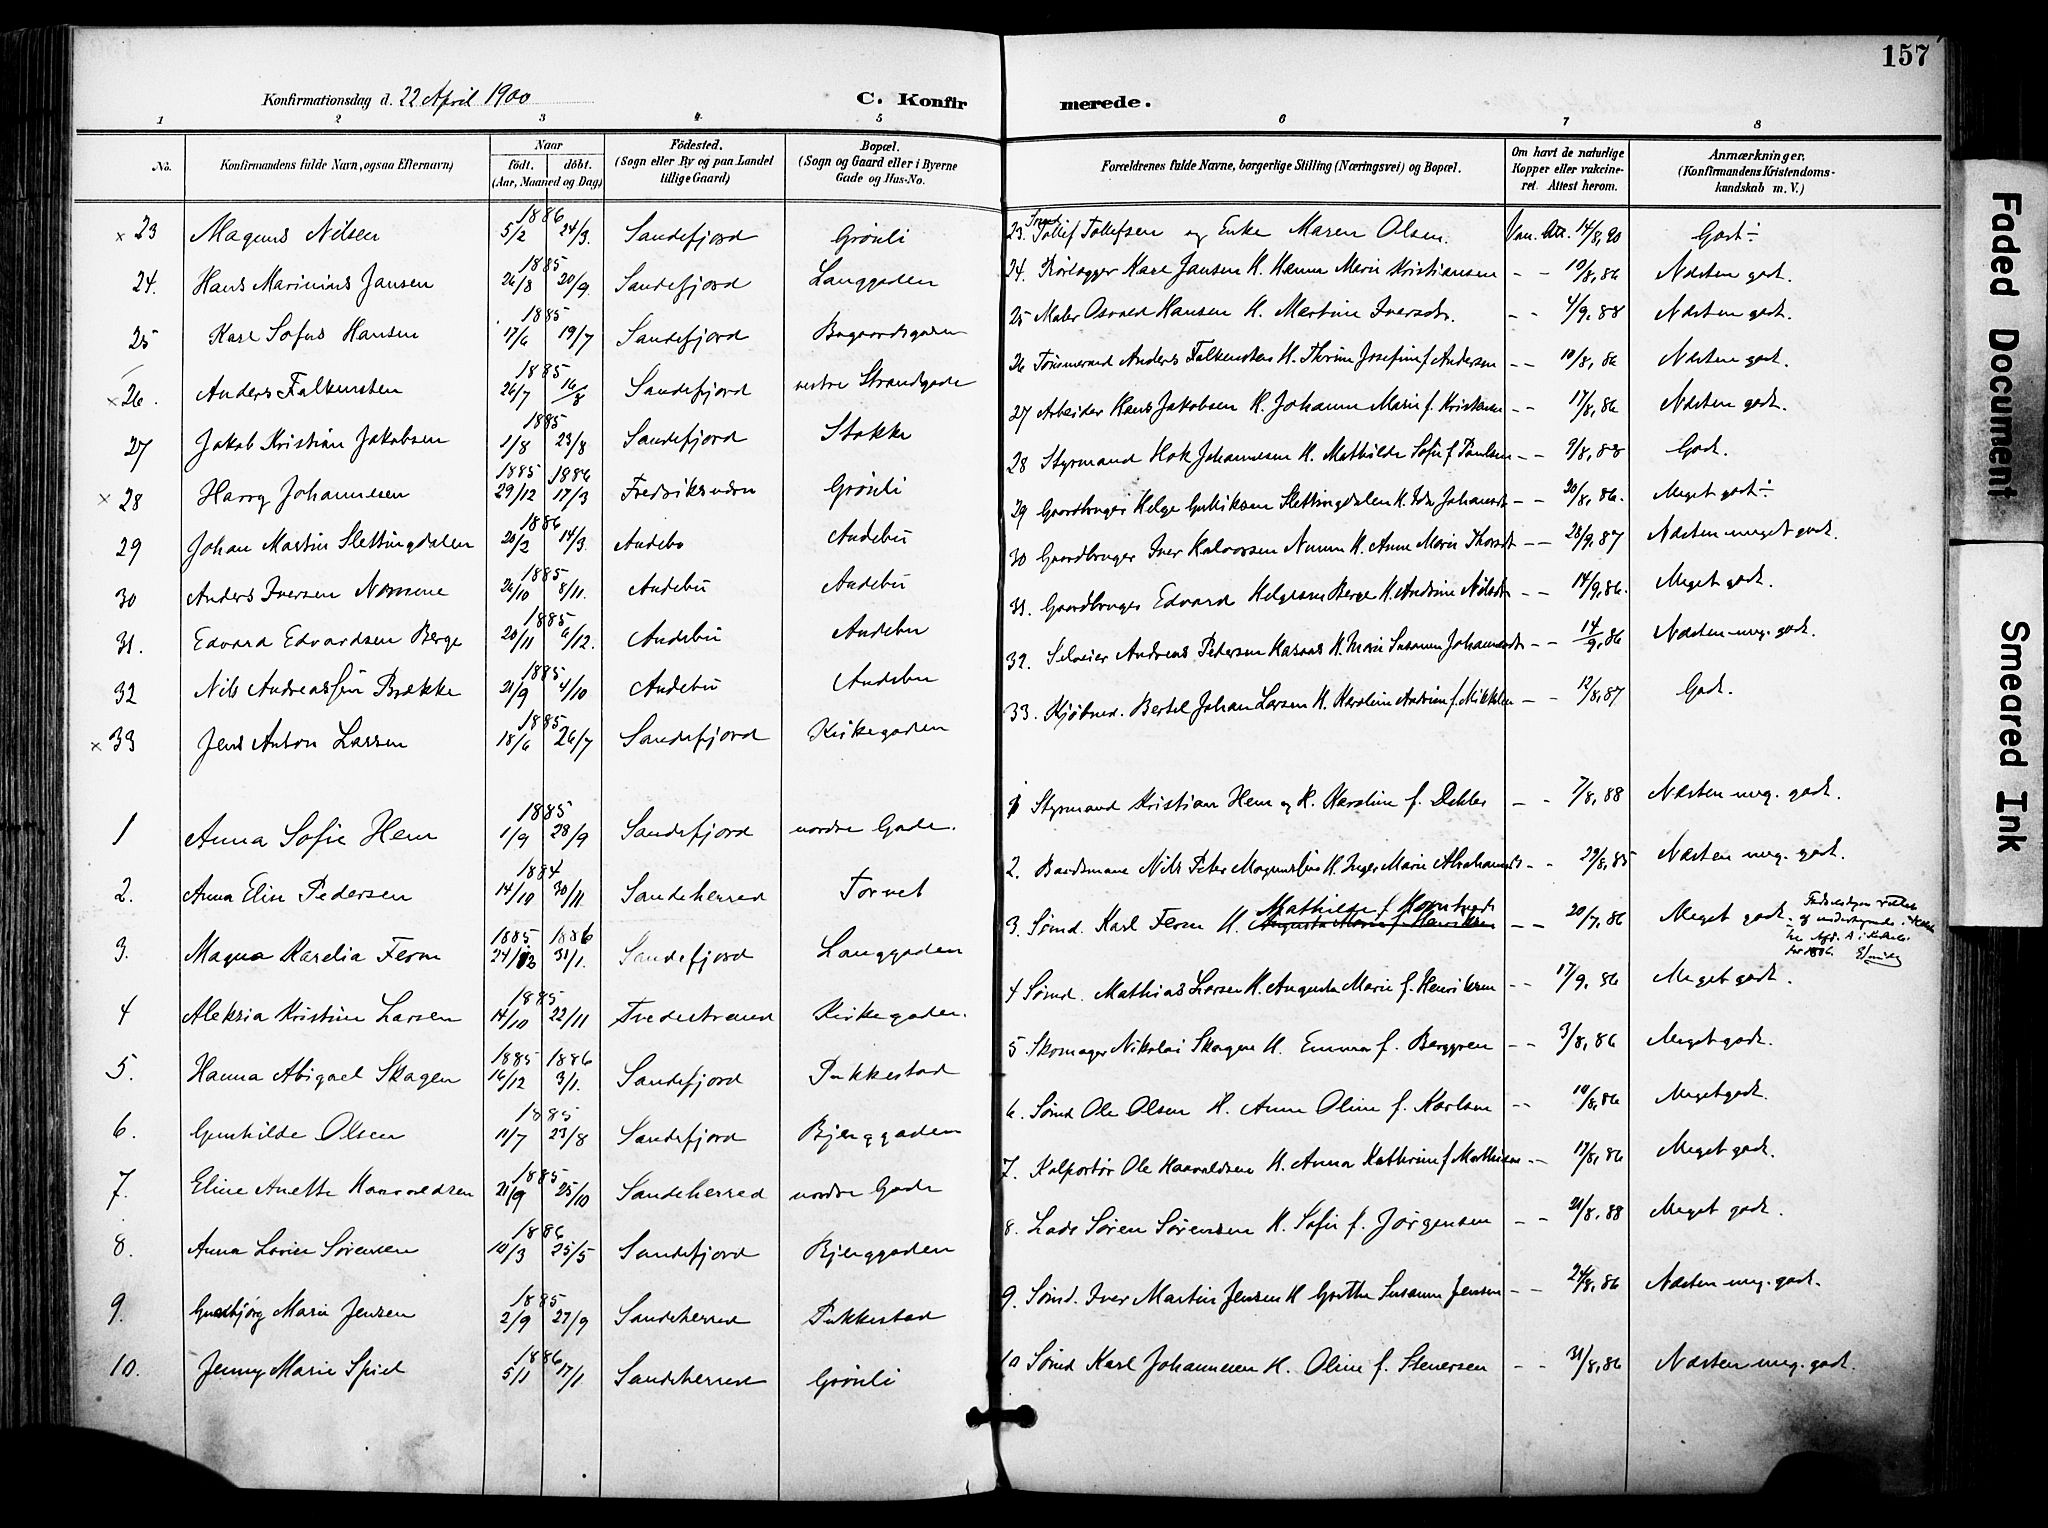 157
Konfirmationsdag d. 22 April 1900
C. Konfir merede.
1 2 3 4 5 6 7 8
No. Konfirmandens fulde Navn, ogsaa Efternavn) Naar født. døbt. (Aar, Maaned og Dag) Fødested. (Sogn eller By og paa Landet tillige Gaard) Bopæl. (Sogn og Gaard eller i Byerne Gade og Hus-No. Forældrenes fulde Navne, borgerlige Stilling (Næringsvei) og Bopæl. Om havt de naturlige Kopper eller vakcineret. Attest herom. Anmærkninger. (Konfirmandens Kristendomskundskab m. V.)
× 23 Magnus Nilsen 1886 5/2 24/3. Sandefjord Grønli 23. Tollef Tollefsen og Enke Maren Olsen. Vac. Att. 14/8, 90 Godt ÷
24. Hans Marinius Jansen 1885 26/8 20/9. Sandefjord Langgaden 24. Karl Jansen H. Hanna Marie Kristiansen - - 10/8, 86 Næsten godt.
25 Karl Sofus Hansen 1885 17/6 19/7 Sandefjord 25 Maler Osvald Hansen H. Martine Iversdt. - - 4/9, 88 Næsten godt.
× 26. Anders Falkensten 1885 26/7 16/8 Sandefjord vestre Strandgade 26 Tømmermd Anders Falkensten H. Thrine Josefine f. Andersen - - 10/8, 86 Næsten godt.
27 Jakob Kristian Jakobsen 1885 1/8 23/8 Sandefjord Stokke 27 Arbeider Hans Jakobsen H. Johanne Marie f. Kristensen - - 17/8, 86 Næsten godt.
× 28 Harry Johannesen 1885 29/12 1886 17/3 Fredriksværn Grønli 28 Styrmand Hok Johannesen H. Mathilde Sofie f. Paulsen - - 9/8, 88 Godt.
29 Johan Martin Slettingdalen 1886 20/2 14/3 Andebo Andebu 29 Gaardbruger Helge Gulliksen Slettingdalen H. Ida Johansdt - - 20/8, 86. Meget godt ÷
30 Anders Iversen Nomme 1885 26/10 8/11. Andebu Andebu 30 Gaardbruger Iver Halvorsen H. Anne Marie Thorsdt - - 28/9, 87 Næsten meget godt.
31. Edvard Edvardsen Berge 1885 20/11 6/12. Andebu Andebu 31. Gaardbruger Edvard Helgesen Berge H. Andrine Nilsdt - - 14/9, 86. Meget godt.
32 Nils Andreassen Brække 1885 21/9 4/10 Andebu Andebu 32. Selveier Andreas Pedersen H. Marie Susanne Johannesdt - - 14/9, 86 Næsten meg. godt.
× 33 Jens Anton Larsen 1885 18/6 26/7 Sandefjord Kirkegaden 33. Kjøbmd. Bertel Johan Larsen H. Karoline Andrine f. Mikkelsen - 12/8, 87 Godt.
1 Anna Sofie Hem 1885 1/9 28/9 Sandefjord nordre Gade. 1 Styrmand Kristian Hem og H. Karoline f. Dahler - - 7/8, 88 Næsten meg. godt.
2. Anna Elise Pedersen 1884 14/10 30/11. Sandeherred Torvet 2. Baadsmand Nils Peter Magnussen H. Inger Marie Abrahamsdt - - 29/8, 85 Næsten meg. godt.
3. Magna Karelia Ferm 1885 24/12 1886 31/1. Sandefjord Langgaden 3. Sømd. Karl Ferm H. Augusta Marie f. Henriksen Mathilde f. - - 20/7, 86 Meget godt.
4 Aleksia Kristine Larsen 1885 14/10 22/11 Tvedestrand Kirkegaden. 4 Sømd. Mathias Larsen H. Augusta Marie f. Henriksen - - 17/9, 86 Meget godt.
5. Hanna Abigael Skagen 1885 16/12 1886 3/1. Sandefjord Pukkestad 5 Skomager Nikolai Skagen H. Emma f. Berggren - - 3/8, 86 Meget godt.
6. Gunhilde Olsen 1885 11/7 23/8 Sandefjord Bjerggaden 6. Sømd Ole Olsen H. Anne Oline f. Karlsen - - 10/8, 86 Meget godt.
7. Eline Anette Haavaldsen 1885 21/9 25/10 Sandeherred nordre Gade 7. Kolportør Ole Haavaldsen H. Anna Kathrine f. Mathisen - - 17/8, 86 Meget godt.
8. Anna Lovise Sørensen 1886 10/3 25/5 Sandefjord Bjerggaden 8. Lods Søren Sørensen H. Sofie f. Jørgensen - - 21/8, 88 Meget godt.
9. Gunbjørg Marie Jensen 1885 2/9 27/9 Sandeherred Pukkestad 9. Sømd. Iver Martin Jensen H Grethe Susanne Jensen - - 24/8, 86 Næsten meg. godt.
10. Jenny Marie Spiel 1886 5/1 17/1 Sandeherred Grønli 10 Sømd Karl Johannesen H. Oline f. Stenersen - - 31/8, 86 Næsten meg. godt.
Faded Document
Smeared Ink